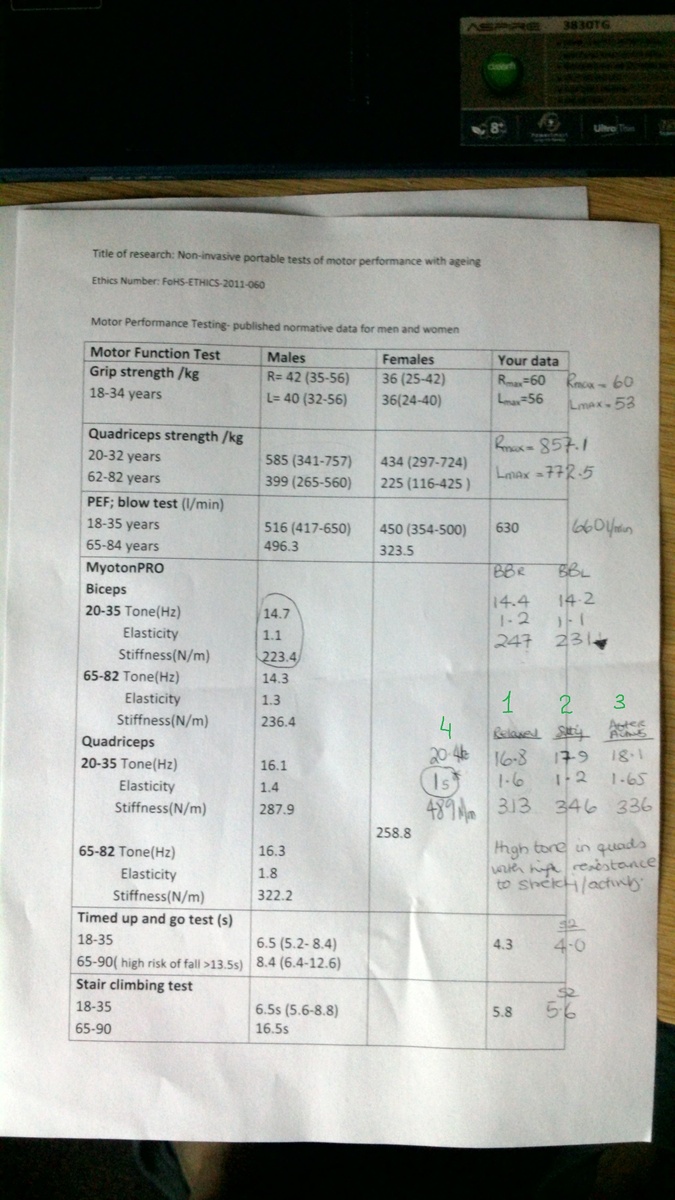 ASPIRE 3830TG
8+
Ultra Thin
Title of research: Non-invasive portable tests of motor performance with ageing
Ethics Number: FoHS-ETHICS-2011-060
Motor Performance Testing- published normative data for men and women
Motor Function Test Males Females Your data
Grip strength /kg R= 42 (35-56) 36 (25-42) Rmax=60 Rmax = 60
18-34 years L= 40 (32-56) 36(24-40) Lmax=56 Lmax = 53
Quadriceps strength /kg Rmax = 857.1
20-32 years 585 (341-757) 434 (297-724)
62-82 years 399 (265-560) 225 (116-425 ) Lmax = 772.5
PEF; blow test (l/min)
18-35 years 516 (417-650) 450 (354-500) 630 660 l/min
65-84 years 496.3 323.5
MyotonPRO BBR BBL
Biceps
20-35 Tone(Hz) 14.7 14.4 14.2
Elasticity 1.1 1.2 1.1
Stiffness(N/m) 223.4 247 231
65-82 Tone(Hz) 14.3
Elasticity 1.3 1 2 3
Stiffness(N/m) 236.4 4
Quadriceps Relaxed
20-35 Tone(Hz) 16.1 16.8 17.9 18.1
Elasticity 1.4 1.6 1.2 1.65
Stiffness(N/m) 287.9 489 N/m 313 346 336
258.8
65-82 Tone(Hz) 16.3 High tone in quads
Elasticity 1.8 with high resistance
Stiffness(N/m) 322.2 to stretch/activity.
Timed up and go test (s) S2
18-35 6.5 (5.2- 8.4) 4.3 4.0
65-90( high risk of fall >13.5s) 8.4 (6.4-12.6)
Stair climbing test S2
18-35 6.5s (5.6-8.8) 5.8 5.6
65-90 16.5s